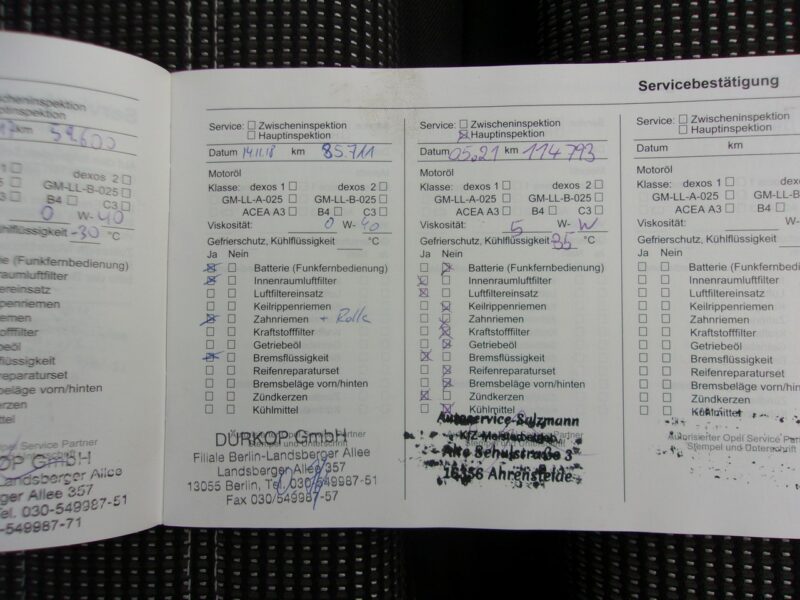 cheninspektion
tinspektion
km 59600
dexos 2 ☐
GM-LL-B-025 ☐
B4 ☐ C3 ☐
0 W- 40
lflüssigkeit -30 °C
e (Funkfernbedienung)
nraumluftfilter
tereinsatz
penriemen
riemen
tofffilter
eöl
flüssigkeit
reparaturset
beläge vorn/hinten
erzen
ittel
Opel Service Partner
KOP GmbH
Landsberger Allee
ger Allee 357
Tel. 030-549987-51
-549987-71
Servicebestätigung
Service: ☐ Zwischeninspektion
☐ Hauptinspektion
Datum 14.11.18 km 85.711
Motoröl
Klasse: dexos 1 ☐ dexos 2 ☐
GM-LL-A-025 ☐ GM-LL-B-025 ☐
ACEA A3 ☐ B4 ☐ C3 ☐
Viskosität: 0 W- 40
Gefrierschutz, Kühlflüssigkeit °C
Ja Nein
☒ ☐ Batterie (Funkfernbedienung)
☒ ☐ Innenraumluftfilter
☐ ☐ Luftfiltereinsatz
☐ ☐ Keilrippenriemen
☒ ☐ Zahnriemen + Rolle
☐ ☐ Kraftstofffilter
☐ ☐ Getriebeöl
☒ ☐ Bremsflüssigkeit
☐ ☐ Reifenreparaturset
☐ ☐ Bremsbeläge vorn/hinten
☐ ☐ Zündkerzen
☐ ☐ Kühlmittel
DÜRKOP GmbH
Filiale Berlin-Landsberger Allee
Landsberger Allee 357
13055 Berlin, Tel. 030/549987-51
Fax 030/549987-57
Service: ☐ Zwischeninspektion
☒ Hauptinspektion
Datum 05.21 km 114793
Motoröl
Klasse: dexos 1 ☐ dexos 2 ☐
GM-LL-A-025 ☐ GM-LL-B-025 ☐
ACEA A3 ☐ B4 ☐ C3 ☐
Viskosität: 5 W- W
Gefrierschutz, Kühlflüssigkeit -35 °C
Ja Nein
☐ ☒ Batterie (Funkfernbedienung)
☒ ☐ Innenraumluftfilter
☒ ☐ Luftfiltereinsatz
☐ ☒ Keilrippenriemen
☐ ☒ Zahnriemen
☐ ☒ Kraftstofffilter
☐ ☒ Getriebeöl
☒ ☐ Bremsflüssigkeit
☐ ☒ Reifenreparaturset
☐ ☒ Bremsbeläge vorn/hinten
☒ ☐ Zündkerzen
☐ ☒ Kühlmittel
Autoservice Salzmann
KfZ-Meisterbetrieb
Alte Schulstraße 3
16356 Ahrensfelde
Service: ☐ Zwischeninspektion
☐ Hauptinspektion
Datum km
Motoröl
Klasse: dexos 1 ☐ dexos
GM-LL-A-025 ☐ GM-LL-B-02
ACEA A3 ☐ B4 ☐ C3
Viskosität: W-
Gefrierschutz, Kühlflüssigkeit
Ja Nein
☐ ☐ Batterie (Funkfernbedie
☐ ☐ Innenraumluftfilter
☐ ☐ Luftfiltereinsatz
☐ ☐ Keilrippenriemen
☐ ☐ Zahnriemen
☐ ☐ Kraftstofffilter
☐ ☐ Getriebeöl
☐ ☐ Bremsflüssigkeit
☐ ☐ Reifenreparaturset
☐ ☐ Bremsbeläge vorn/hin
☐ ☐ Zündkerzen
☐ ☐ Kühlmittel
Autorisierter Opel Service Par
Stempel und Unterschrift